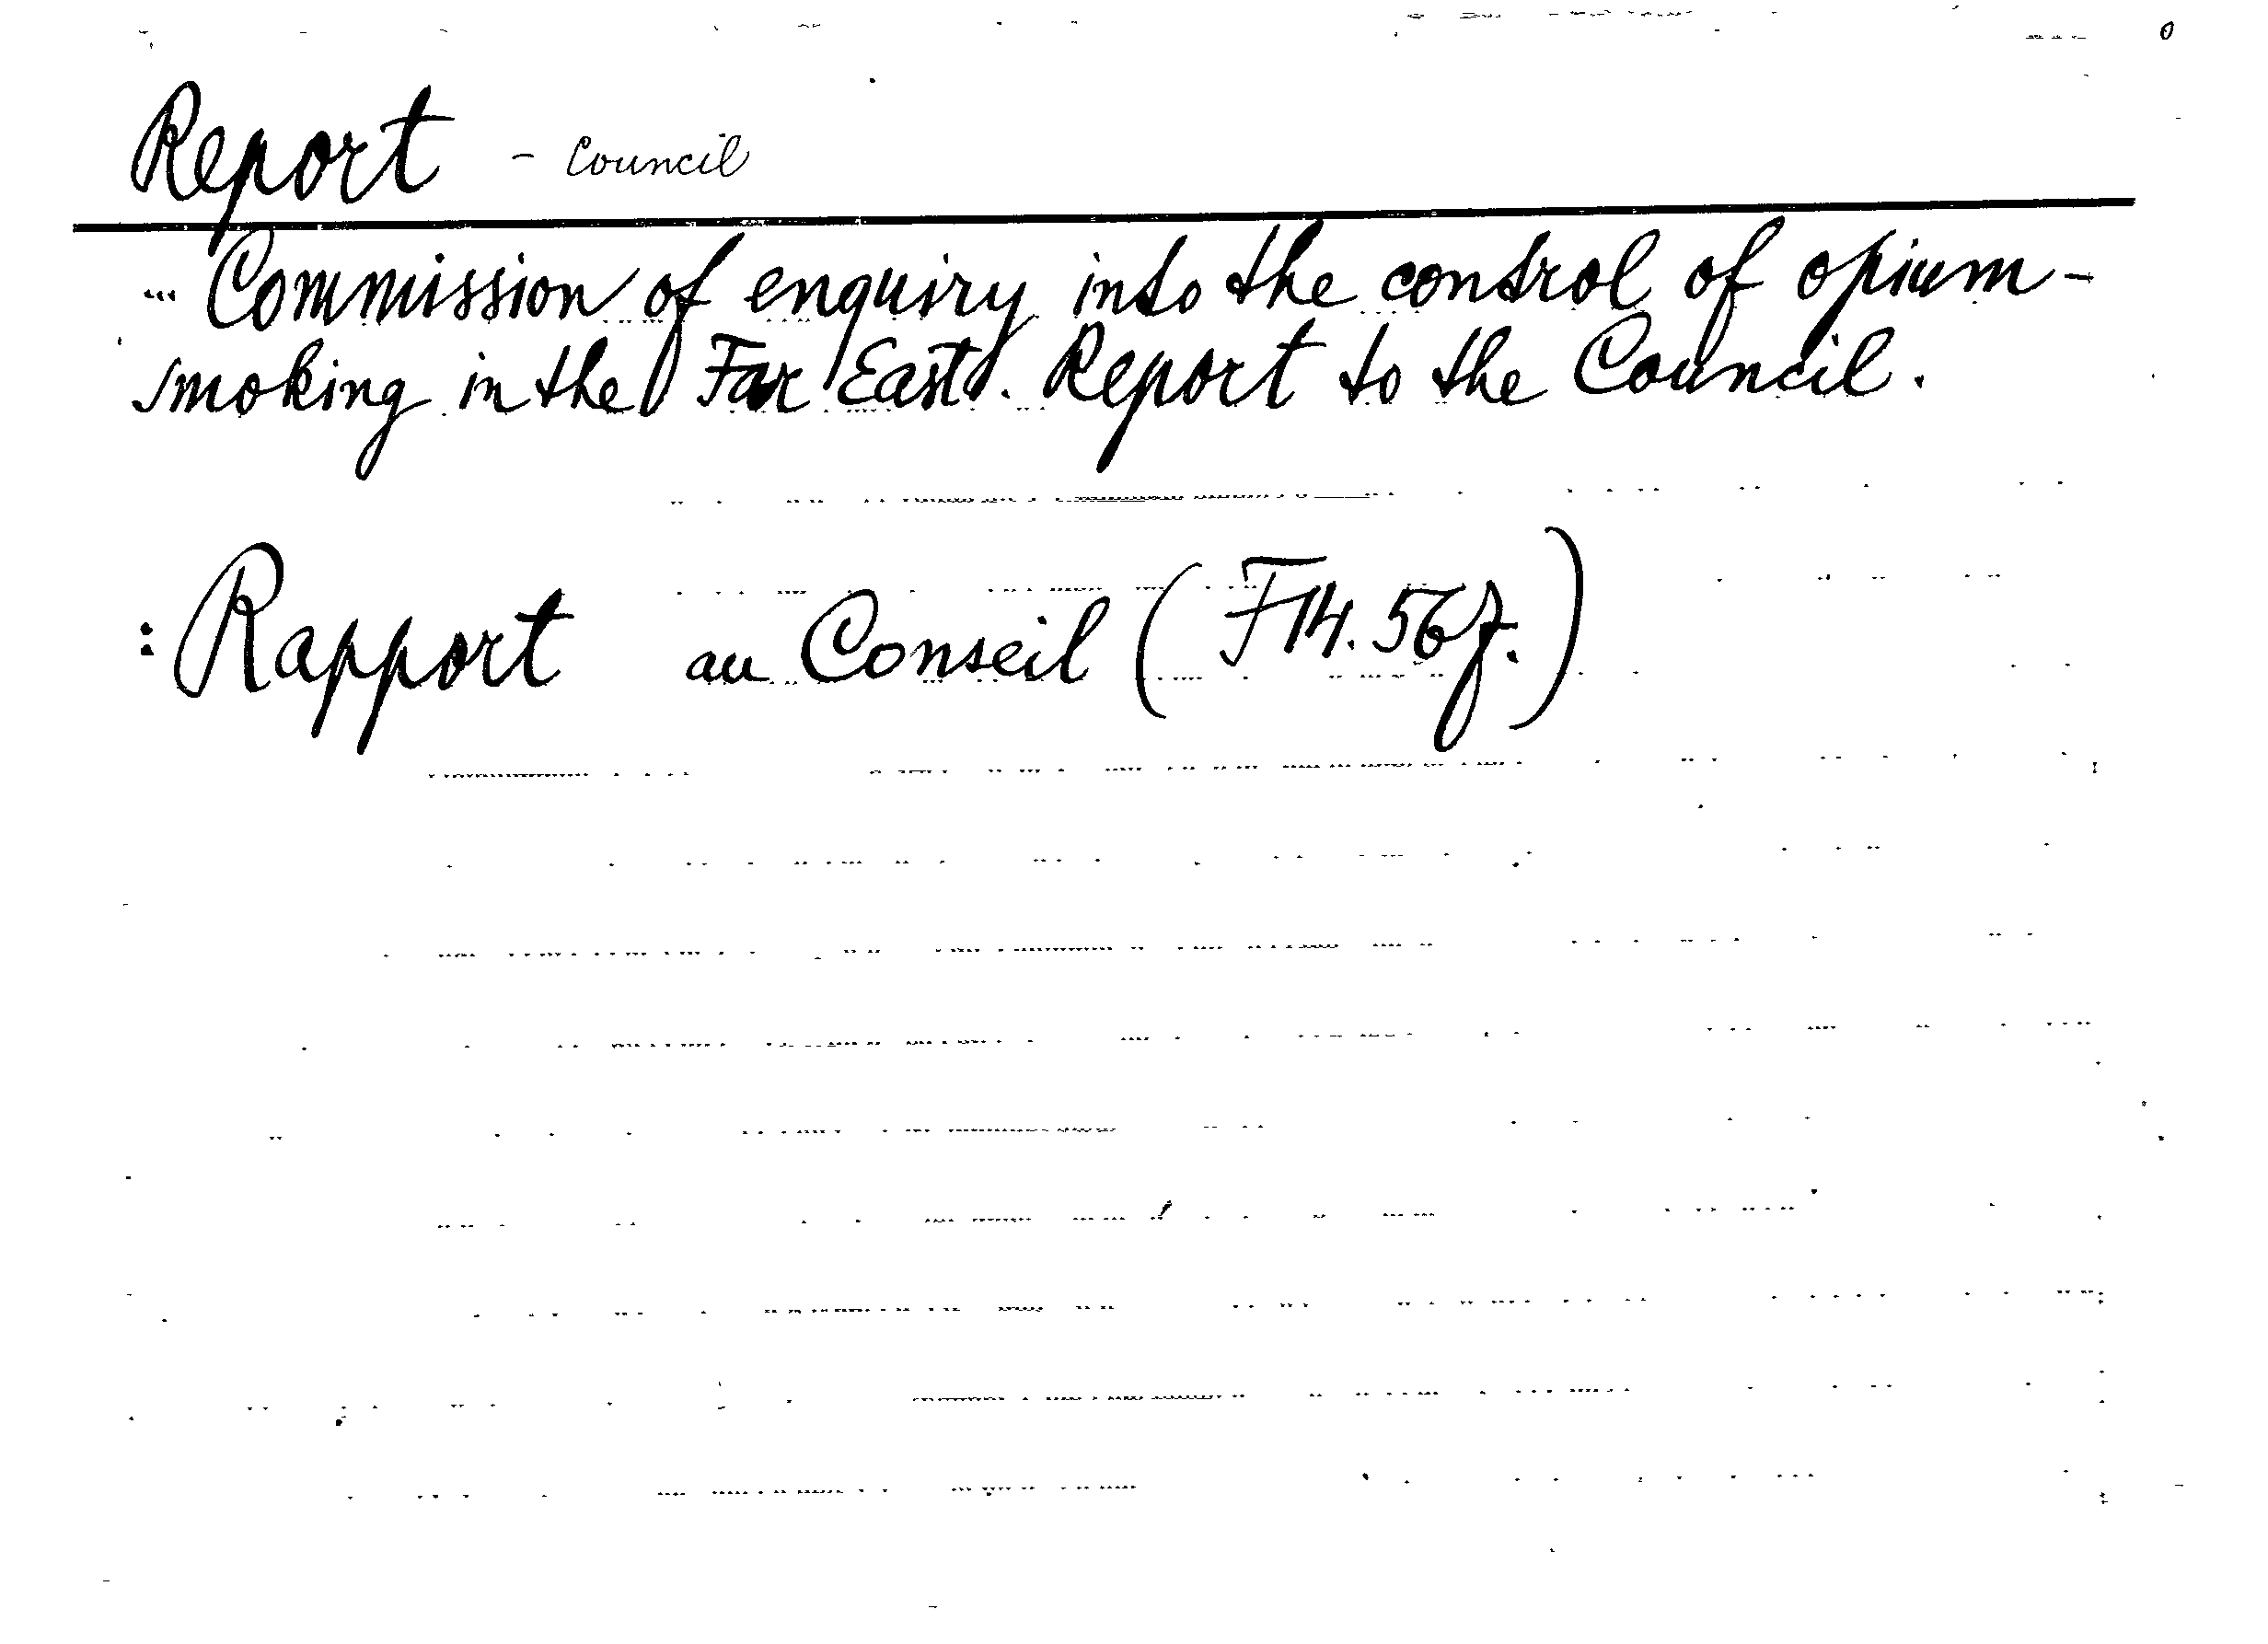 Report - Council
"Commission of enquiry into the control of opium-
smoking in the Far East. Report to the Council.
: Rapport au Conseil (F14.56f.)